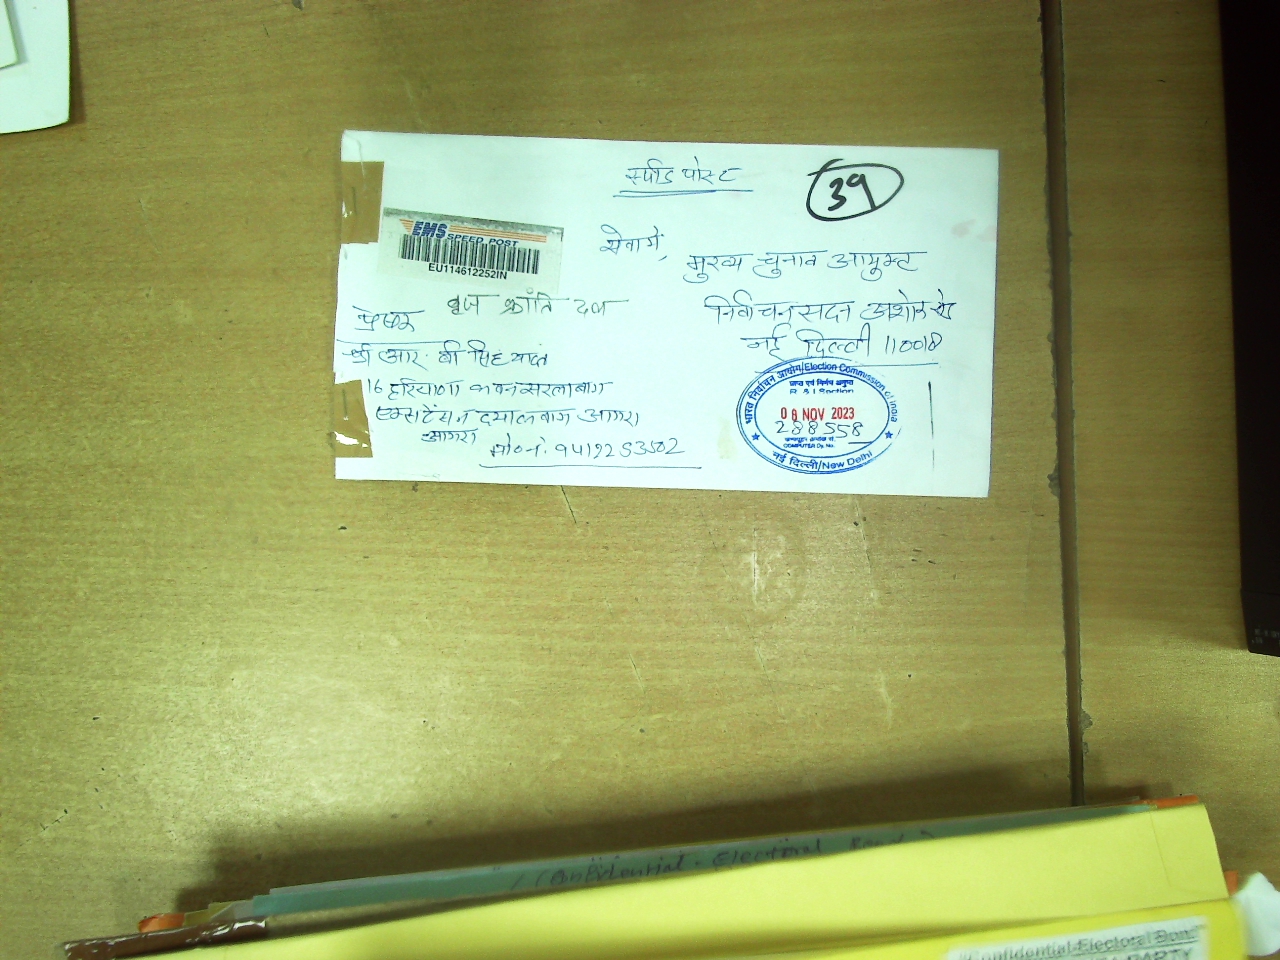 स्पीड पोस्ट
39
EMS SPEED POST
EU114612252IN
सेवामें,
मुख्य चुनाव आयुक्त
निर्वाचन सदन अशोक रोड
नई दिल्ली 110018
प्रेषक
बृज क्रांति दल
श्री आर. बी सिंह
16 हरियाणा सरलाबाग
एक्सटेंसन दयालबाग आगरा
आगरा
मो०नं. 9412253502
भारत निर्वाचन आयोग/Election Commission of India
R & I Section
08 NOV 2023
288558
COMPUTER Dy. No.
नई दिल्ली/New Delhi
Confidential - Electoral
"Confidential-Electoral Bond"
PARTY